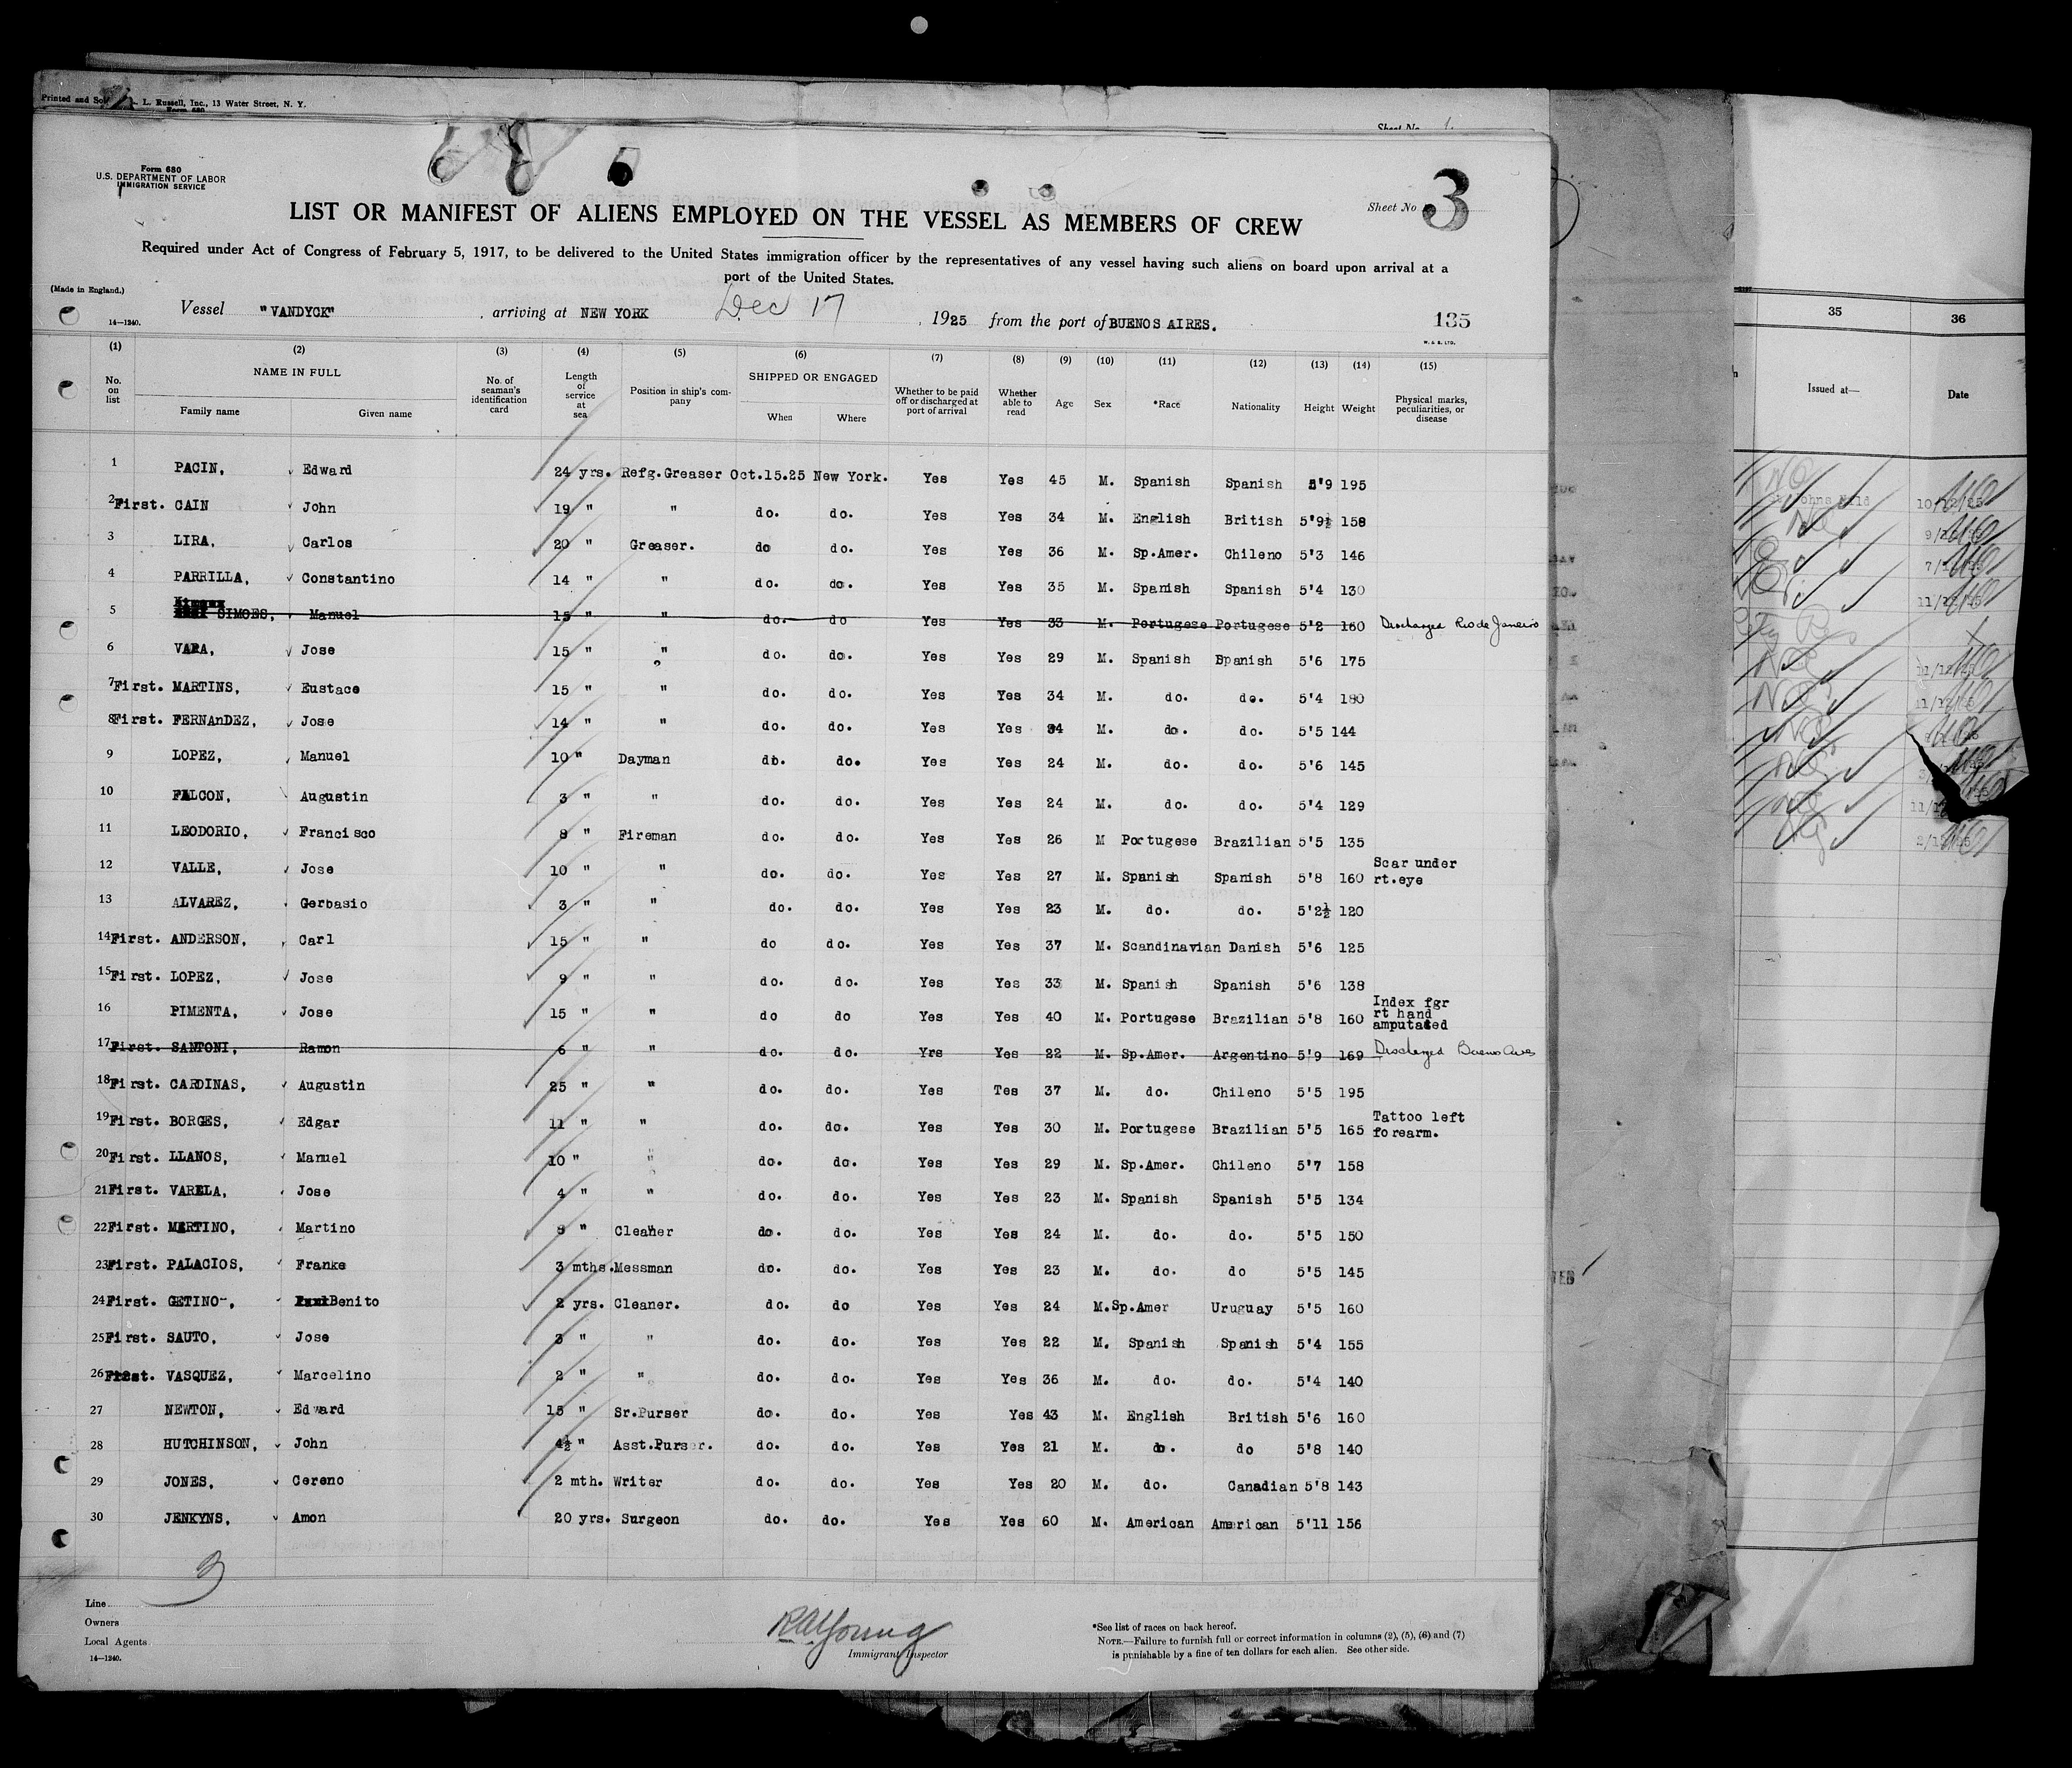 Printed and Sol L. Russell, Inc., 13 Water Street, N. Y.
Form 680
Sheet No.
Form 680
U.S. DEPARTMENT OF LABOR
IMMIGRATION SERVICE
Sheet No 3
LIST OR MANIFEST OF ALIENS EMPLOYED ON THE VESSEL AS MEMBERS OF CREW
Required under Act of Congress of February 5, 1917, to be delivered to the United States immigration officer by the representatives of any vessel having such aliens on board upon arrival at a
port of the United States.
(Made in England.)
14—1240.
Vessel "VANDYCK", arriving at NEW YORK Dec 17, 1925 from the port of BUENOS AIRES. 135
W. & S. LTD.
(1) (2) (3) (4) (5) (6) (7) (8) (9) (10) (11) (12) (13) (14) (15) 35 36
No. on list NAME IN FULL Family name Given name No. of seaman's identification card Length of service at sea Position in ship's company SHIPPED OR ENGAGED When Where Whether to be paid off or discharged at port of arrival Whether able to read Age Sex *Race Nationality Height Weight Physical marks, peculiarities, or disease Issued at— Date
1 PACIN, Edward 24 yrs. Refg.Greaser Oct.15.25 New York. Yes Yes 45 M. Spanish Spanish 5'9 195
2 First. CAIN John 19 " " do. do. Yes Yes 34 M. English British 5'9½ 158
3 LIRA, Carlos 20 " Greaser. do do. Yes Yes 36 M. Sp.Amer. Chileno 5'3 146
4 PARRILLA, Constantino 14 " " do. do. Yes Yes 35 M. Spanish Spanish 5'4 130
5 SIMOES, Manuel 15 " " do. do Yes Yes 33 M. Portugese Portugese 5'2 160 Discharged Rio de Janeiro
6 VARA, Jose 15 " " do. do. Yes Yes 29 M. Spanish Spanish 5'6 175
7 First. MARTINS, Eustace 15 " " do. do. Yes Yes 34 M. do. do. 5'4 180
8 First. FERNAnDEZ, Jose 14 " " do. do. Yes Yes 34 M. do. do. 5'5 144
9 LOPEZ, Manuel 10 " Dayman do. do. Yes Yes 24 M. do. do. 5'6 145
10 FALCON, Augustin 3 " " do. do. Yes Yes 24 M. do. do. 5'4 129
11 LEODORIO, Francisco 8 " Fireman do. do. Yes Yes 26 M Portugese Brazilian 5'5 135
12 VALLE, Jose 10 " " do. do. Yes Yes 27 M. Spanish Spanish 5'8 160 Scar under rt.eye
13 ALVAREZ, Gerbasio 3 " " do. do. Yes Yes 23 M. do. do. 5'2½ 120
14 First. ANDERSON, Carl 15 " " do do. Yes Yes 37 M. Scandinavian Danish 5'6 125
15 First. LOPEZ, Jose 9 " " do. do. Yes Yes 33 M. Spanish Spanish 5'6 138
16 PIMENTA, Jose 15 " " do do Yes Yes 40 M. Portugese Brazilian 5'8 160 Index fgr rt hand amputated
17 First. SANTONI, Ramon 6 " " do. do. Yrs Yes 22 M. Sp.Amer. Argentino 5'9 169 Discharged Buenos Aires
18 First. CARDINAS, Augustin 25 " " do. do. Yes Tes 37 M. do. Chileno 5'5 195
19 First. BORGES, Edgar 11 " " do. do. Yes Yes 30 M. Portugese Brazilian 5'5 165 Tattoo left forearm.
20 First. LLANOS, Manuel 10 " " do. do. Yes Yes 29 M. Sp.Amer. Chileno 5'7 158
21 First. VARELA, Jose 4 " " do. do. Yes Yes 23 M. Spanish Spanish 5'5 134
22 First. MARTINO, Martino " Cleaner do. do. Yes Yes 24 M. do. do. 5'5 150
23 First. PALACIOS, Franke 3 mths. Messman do. do. Yes Yes 23 M. do. do 5'5 145
24 First. GETINO-, Benito 2 yrs. Cleaner. do. do Yes Yes 24 M. Sp.Amer Uruguay 5'5 160
25 First. SAUTO, Jose 3 " " do. do. Yes Yes 22 M. Spanish Spanish 5'4 155
26 First. VASQUEZ, Marcelino 2 " " do. do. Yes Yes 36 M. do. do. 5'4 140
27 NEWTON, Edward 15 " Sr.Purser do. do. Yes Yes 43 M. English British 5'6 160
28 HUTCHINSON, John 4½ " Asst.Purser. do. do. Yes Yes 21 M. do. do 5'8 140
29 JONES, Cereno 2 mth. Writer do. do. Yes Yes 20 M. do. Canadian 5'8 143
30 JENKYNS, Amon 20 yrs. Surgeon do. do. Yes Yes 60 M. American American 5'11 156
3
Line
Owners
Local Agents
14—1240.
RAYoung
Immigrant Inspector
*See list of races on back hereof.
NOTE.—Failure to furnish full or correct information in columns (2), (5), (6) and (7)
is punishable by a fine of ten dollars for each alien. See other side.